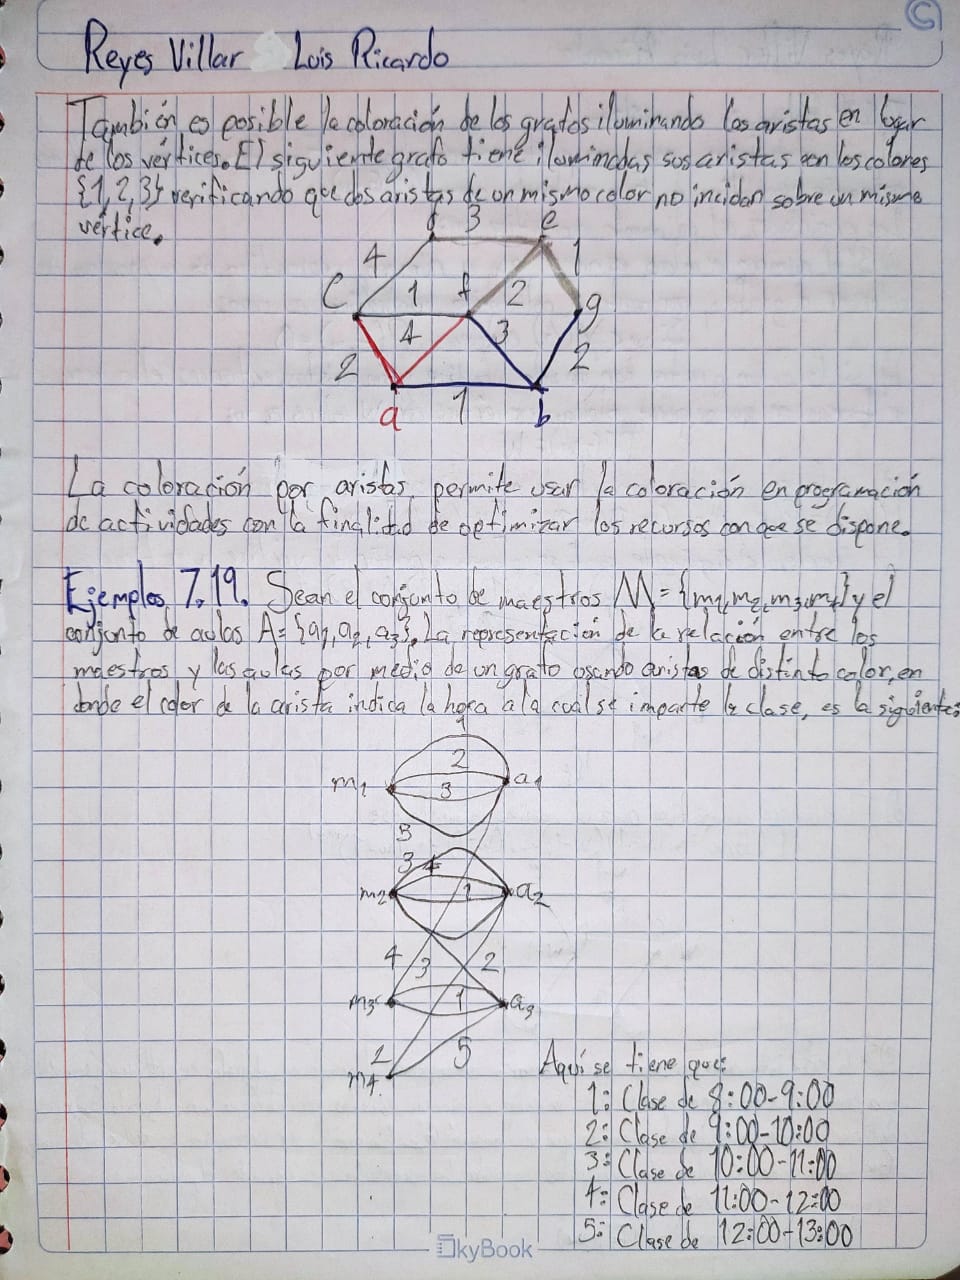 Reyes Villar Luis Ricardo
También es posible la coloración de los grafos iluminando las aristas en lugar
de los vértices. El siguiente grafo tiene iluminadas sus aristas con los colores
{1, 2, 3} verificando que dos aristas de un mismo color no incidan sobre un mismo
vértice.
3 e
4 1
c 1 f 2 g
4 3
2 2
1
a b
La coloración por aristas, permite usar la coloración en programación
de actividades con la finalidad de optimizar los recursos con que se dispone.
Ejemplos 7.19. Sean el conjunto de maestros M = {m1, m2, m3, m4} y el
conjunto de aulas A = {a1, a2, a3}. La representación de la relación entre los
maestros y las aulas por medio de un grafo usando aristas de distinto color, en
donde el color de la arista indica la hora a la cual se imparte la clase, es la siguiente:
1
2
m1 a1
3
5
3 4
m2 1 a2
4 3 2
m3 1 a3
2 5
m4
Aquí se tiene que:
1: Clase de 8:00-9:00
2: Clase de 9:00-10:00
3: Clase de 10:00-11:00
4: Clase de 11:00-12:00
5: Clase de 12:00-13:00
SkyBook